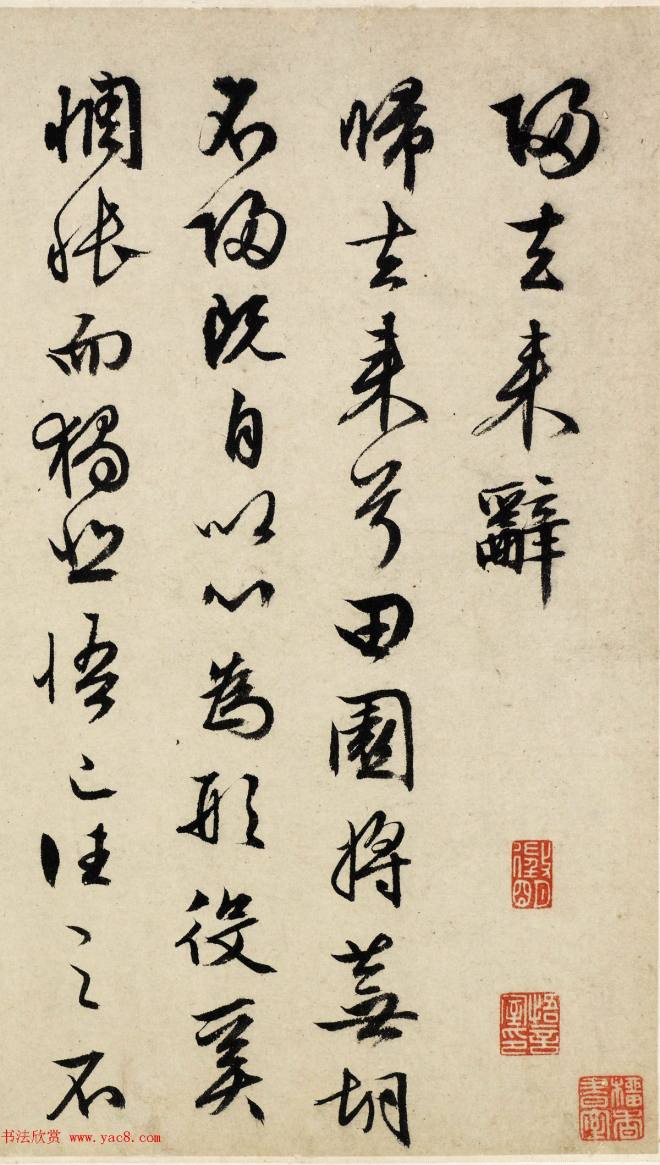 歸去来辭
歸去来兮田園将蕪胡
不歸既自以心為形役奚
惆悵而獨悲悟已往之不
书法欣赏 www.yac8.com